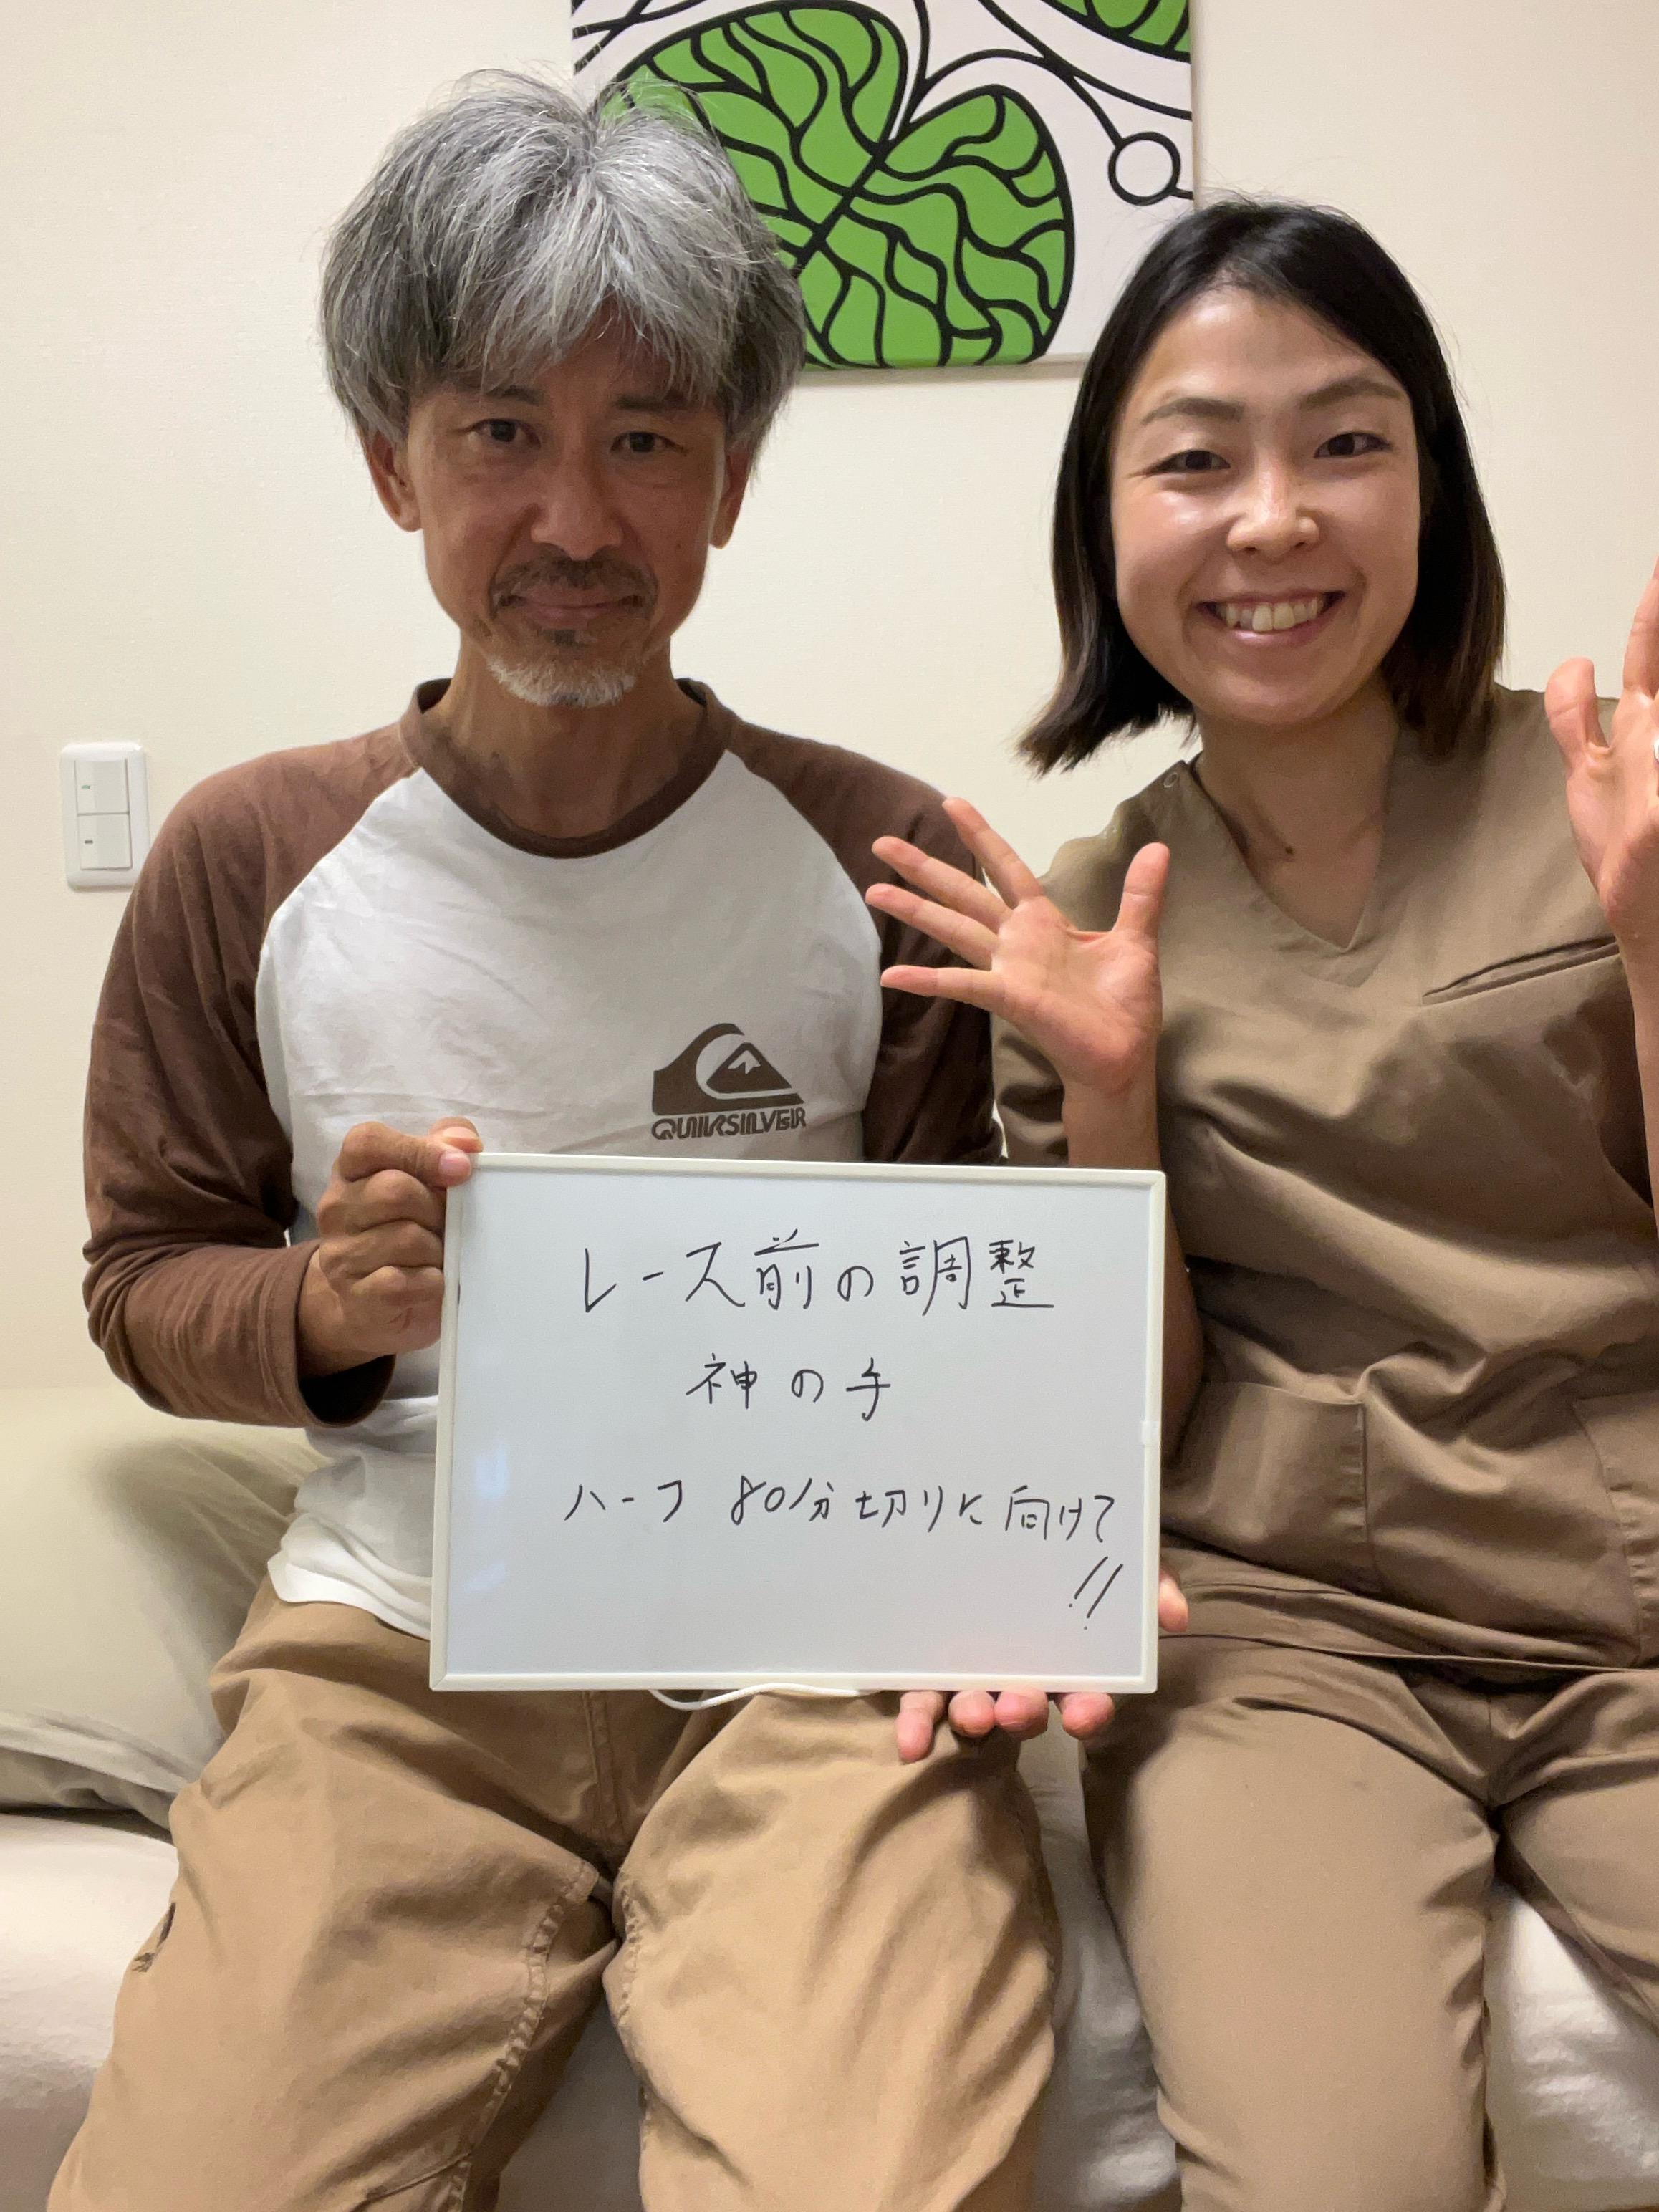 QUIKSILVER
レース前の調整
神の手
ハーフ 80分切りに向けて
!!